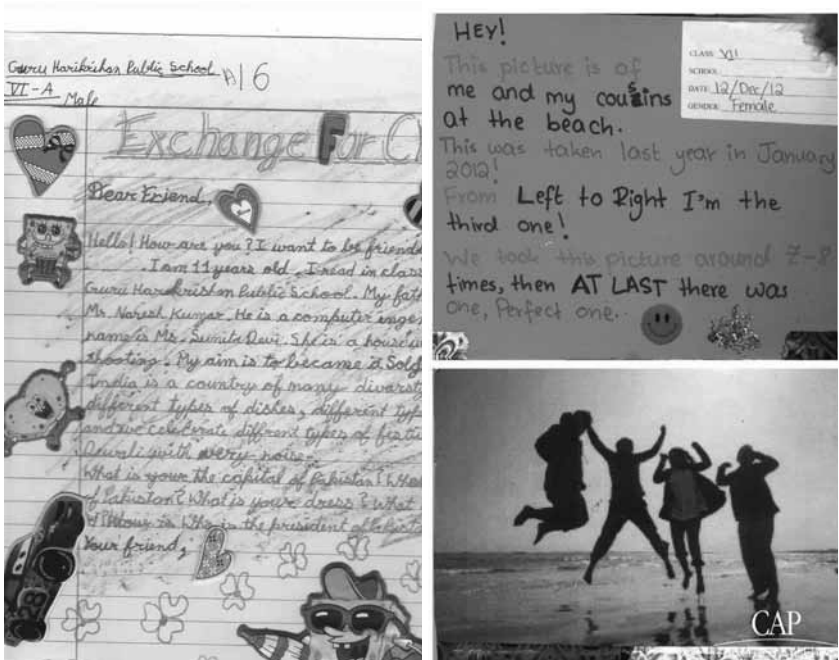 Guru Harikrishan Public School
A16
VI-A
Male
Exchange For C
Dear Friend,
Hello! How are you? I want to be friends
I am 11 years old. I read in class
Guru Harikrishan Public School. My fath
Mr. Naresh Kumar. He is a computer enge
name is Ms. Sunita Devi. She is a housew
shooting. My aim is to became a Sold
India is a country of many diversty
different types of dishes, different typ
and we celebrate diffrent types of festiv
Diwali with every noise.
What is your the capital of Pakistan? Wh
of Pakistan? What is your dress? What
Who is the president of Pakist
Your friend,
HEY!
This picture is of
me and my cousins
at the beach.
This was taken last year in January
2012!
From Left to Right I'm the
third one!
We took this picture around 7-8
times, then AT LAST there was
one, Perfect one.
CLASS VII
SCHOOL
DATE 12/Dec/12
GENDER Female
CAP